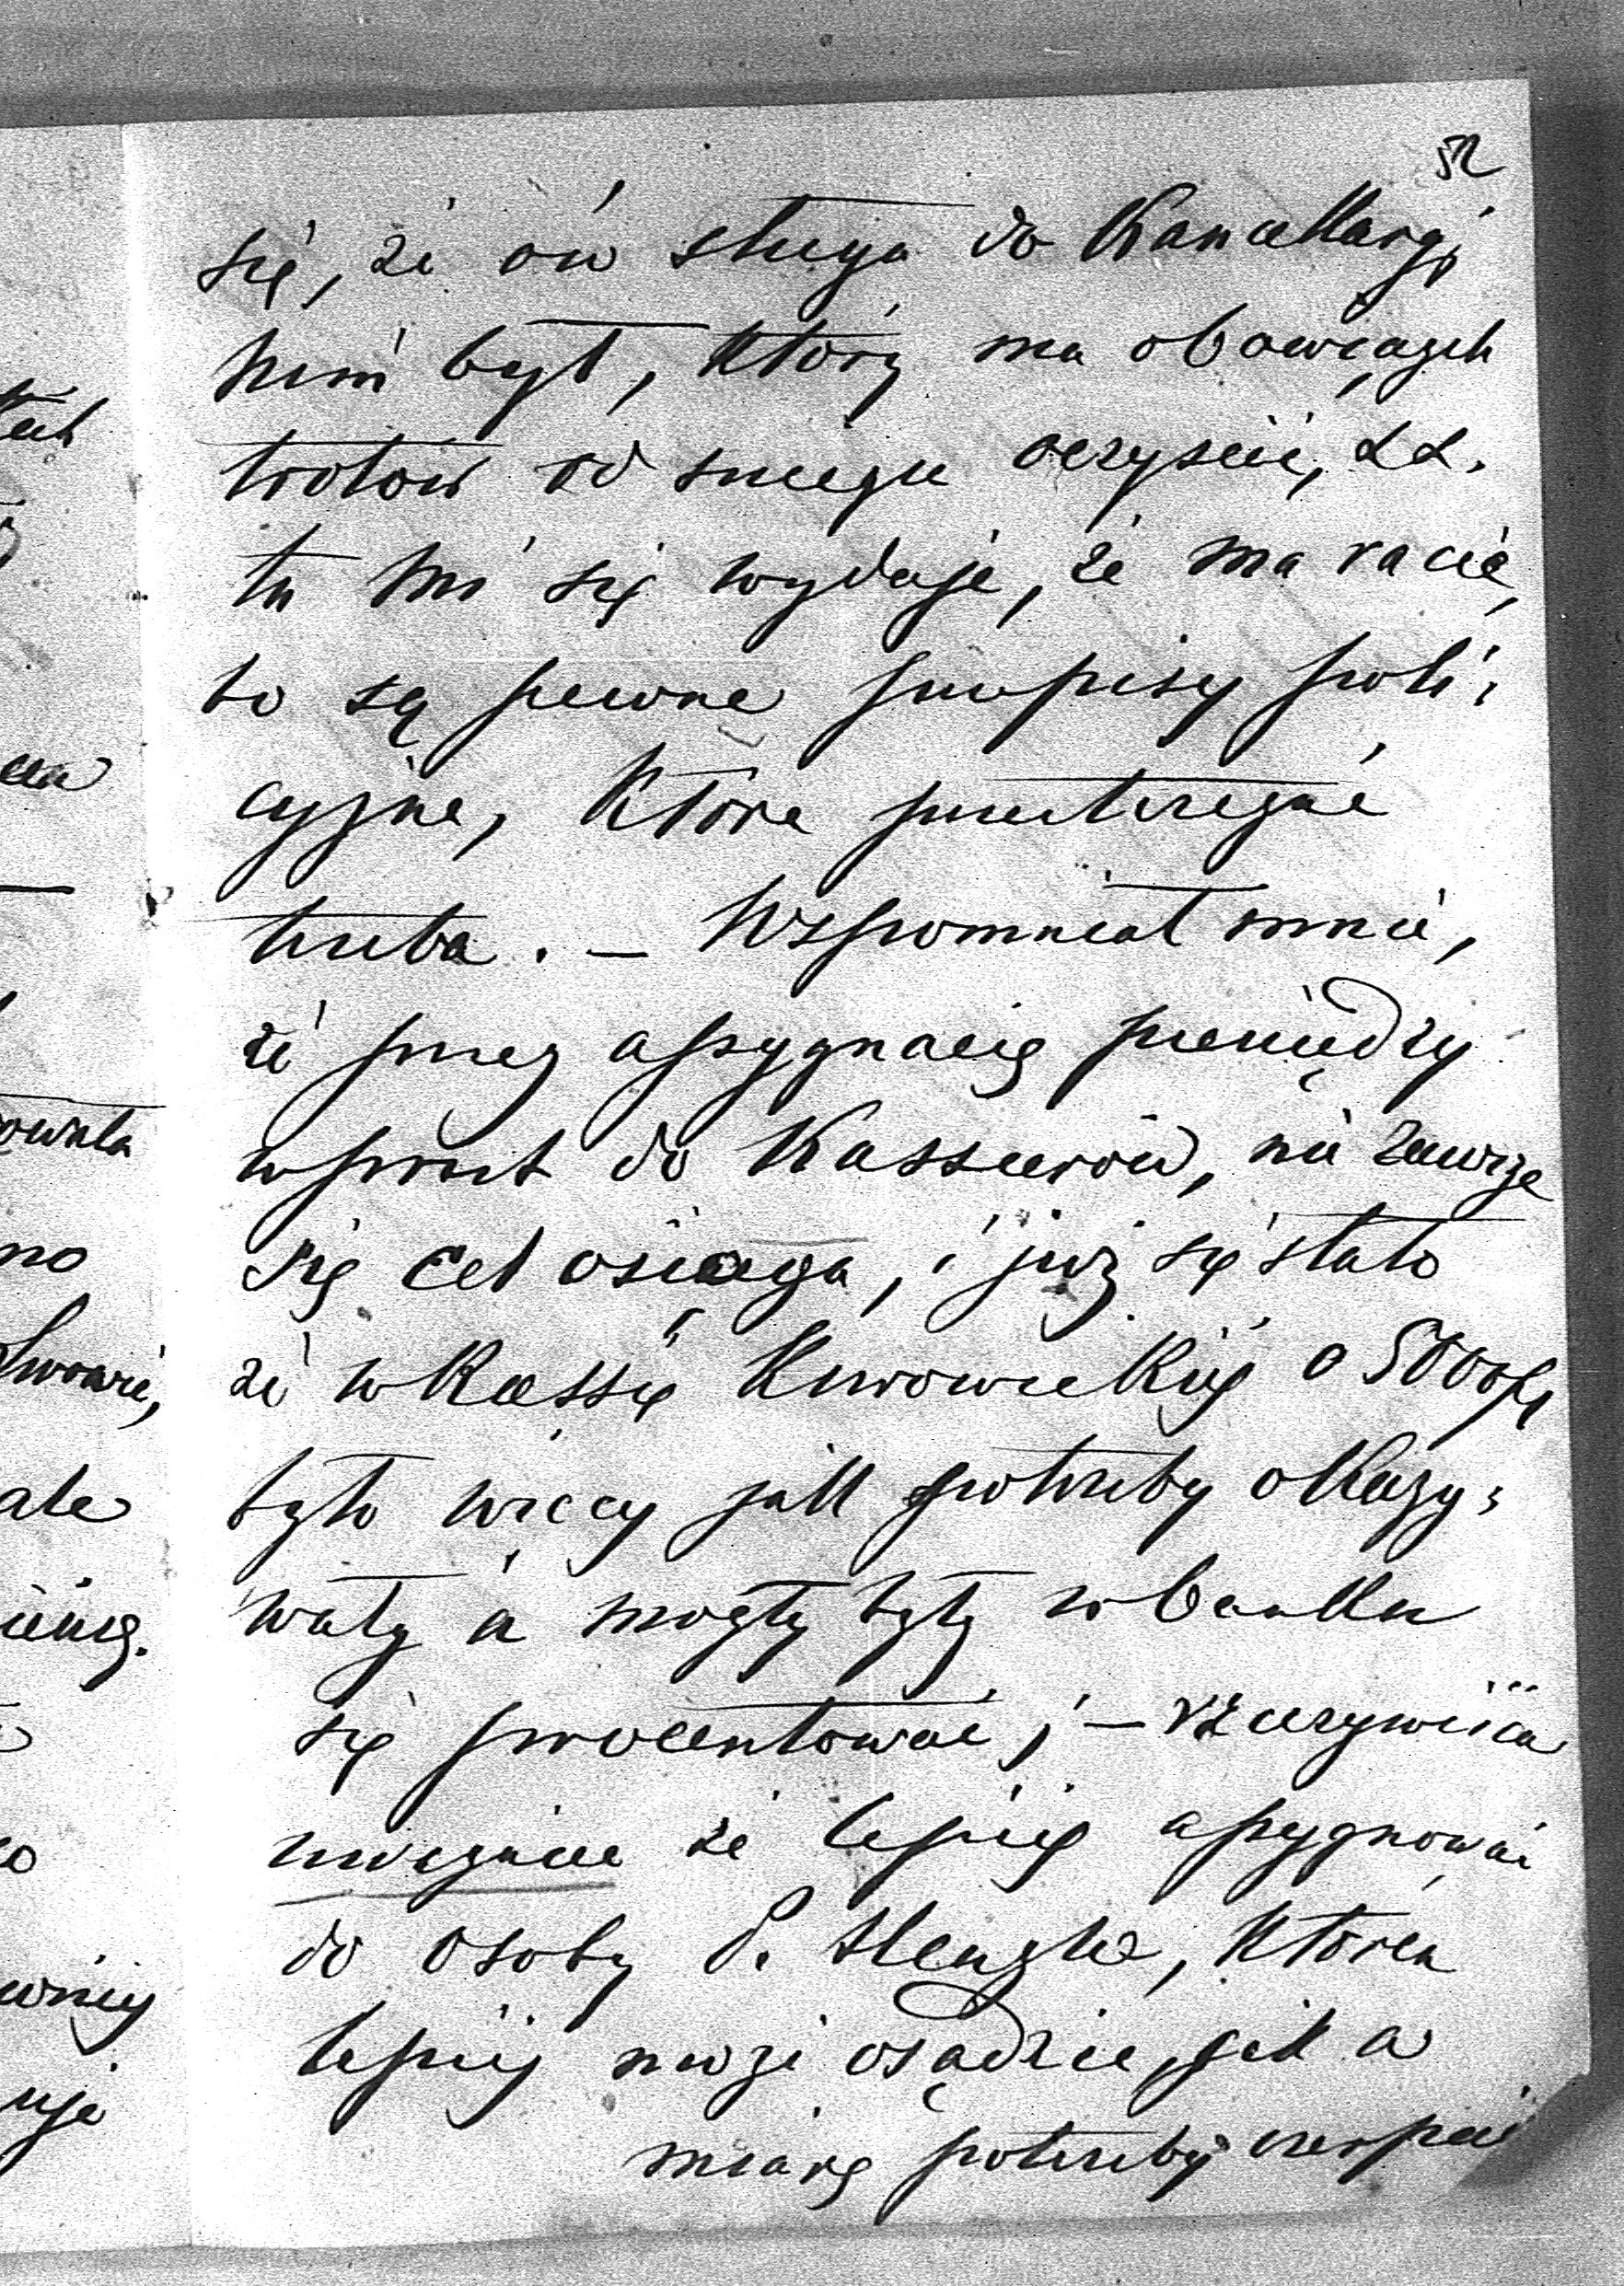 52
się, że ów sługa do Kancellaryi
nim był, który ma obowiązek
trotów od sniegu oczyścić, &&.
tu mi się wydaje, że ma racię,
bo są pewne przepisy poli:
cyjne, które przestrzegać
trzeba. – Wspomniał mnie,
że przez assygnacię pieniędzy
wprost do Kasserów, nie zawsze
się cel osiąga, i już się stało
że w Kassie Kurowieckiej o 5000
było więcy jak potrzeby okazy:
wały a mogły były w banku
się procentować; – rzeczywiście
uważacie że lepiej assygnować
do osoby P. , który
lepiej może osądzić, jak a
miarę potrzeby czerpać